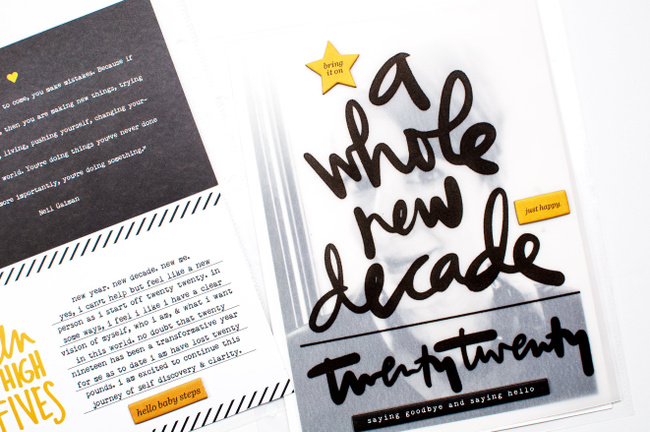 to come, you make mistakes. Because if
then you are making new things, trying
living, pushing yourself, changing your-
world. You're doing things you've never done
more importantly, you're doing something."
Neil Gaiman
new year. new decade. new me.
yes, i can't help but feel like a new
person as i start off twenty twenty. in
some ways, i feel i like i have a clear
vision of myself, who i am, & what i want
in this world. no doubt that twenty
nineteen has been a transformative year
for me as to date i am have lost twenty
pounds. i am excited to continue this
journey of self discovery & clarity.
HIGH
FIVES
hello baby steps
bring
it on
a
whole
new
decade
just happy
twenty twenty
saying goodbye and saying hello